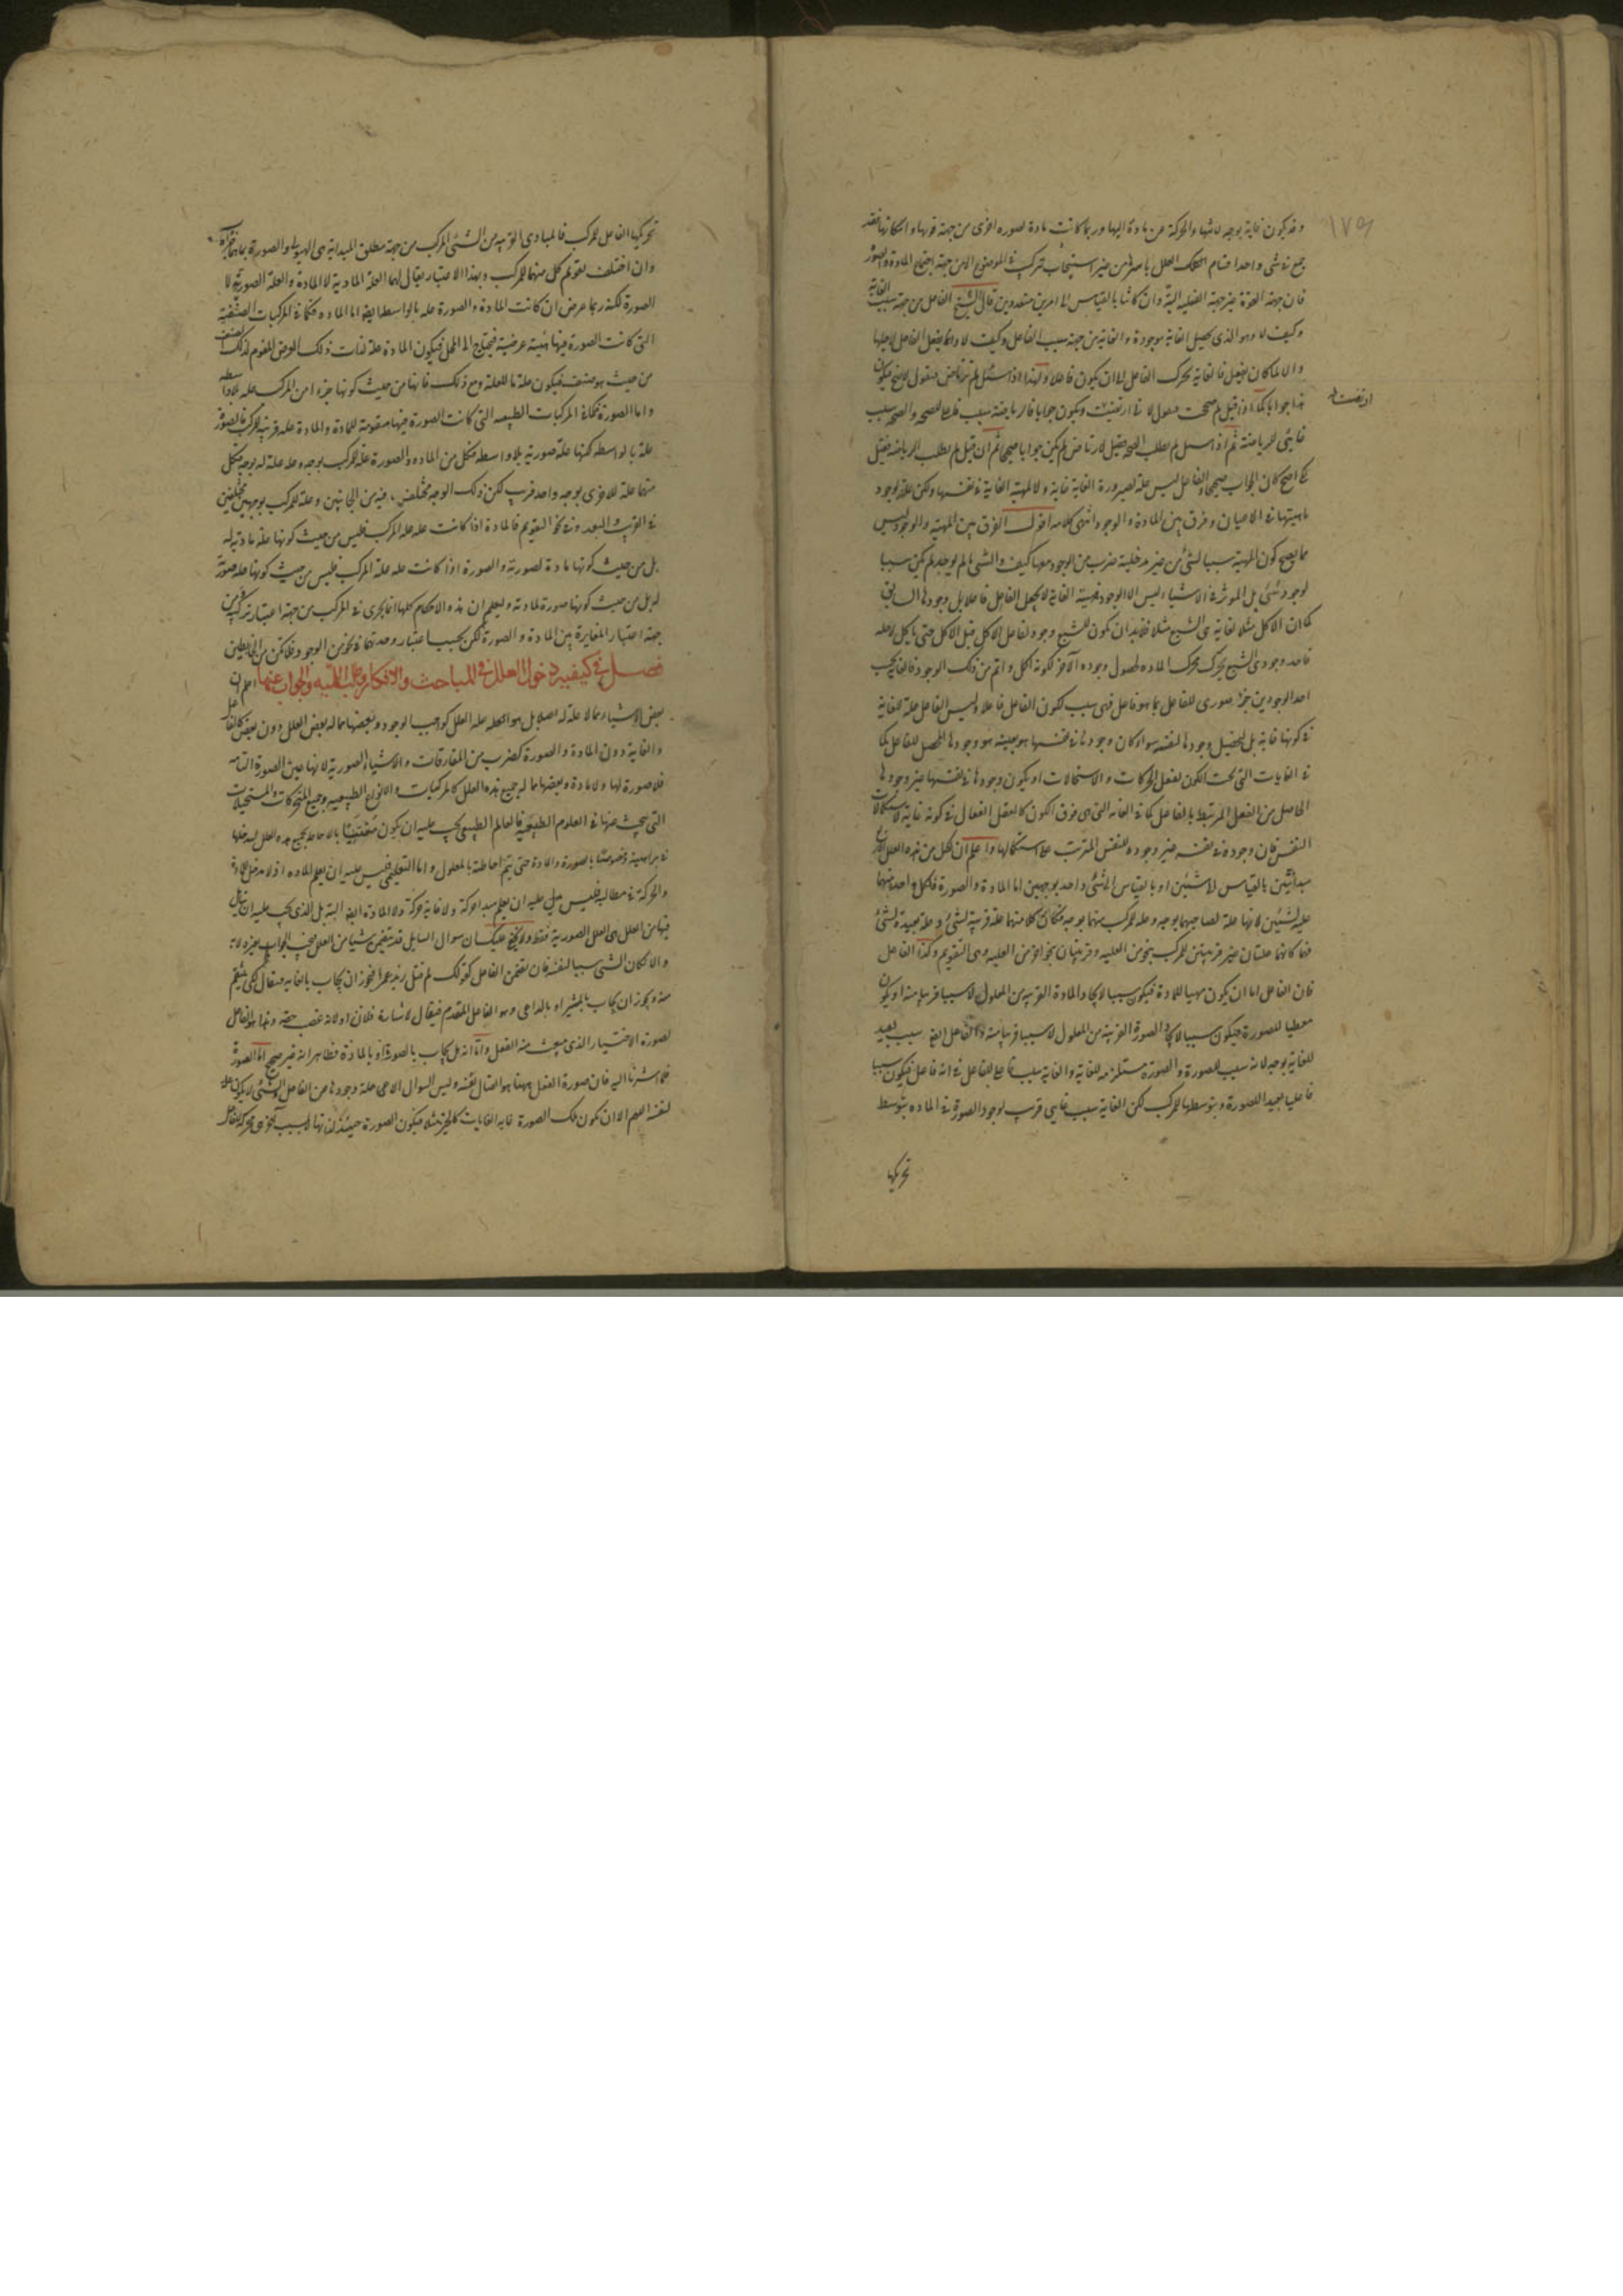 وقد يكون غاية بوجه لانتهاء الحركة عن مادة اليها وربما كانت مادة لصورة اخرى من جهة قوتها وامكانها فقد
جمع في شىء واحد اقسام العلل باسرها من غير استيجاب تركيب في الموضوع الا من جهة اجتماع المادة والصورة
فان جهة القوة غير جهة الفعلية البتة وان كانتا بالقياس الى امرين متعددين قال الشيخ الفاعل من جهة سبب الغاية
وكيف لا وهو الذى يحصل الغاية موجودة والغاية من جهة سبب الفاعل وكيف لا وانما يفعل الفاعل لاجلها
والا لما كان يفعل فالغاية تحرك الفاعل الى ان يكون فاعلا ولهذا اذا سئل لم ترتاض فيقول لاصح فيكون
هذا جوابا كما اذا قيل لم صححت فيقول لانى ارتضت ويكون جوابا فالرياضة سبب فاعلى للصحة والصحة سبب
غايى للرياضة ثم اذا سئل لم تطلب الصحة فقيل لارتاض لم يكن جوابا صحيحا ثم ان قيل لم تطلب الرياضة فقيل
لكى اصح كان الجواب صحيحا والفاعل ليس علة لصيرورة الغاية غاية ولا لمهية الغاية في نفسها ولكن علة لوجود
ماهيتها في الاعيان وفرق بين المادة والوجود انتهى كلامه اقول الفرق بين المهية والوجود ليس
مما يصح كون المهية سببا لشىء من غير مدخلية ضرب من الوجود معها كيف والشىء ما لم يوجد لم يكن سببا
لوجود شىء بل الموثر في الاشياء ليس الا الوجود فمهية الغاية لا تجعل الفاعل فاعلا بل وجودها السابق
كما ان الاكل مثلا لغاية هى الشبع مثلا فلابد ان يكون للشبع وجود لفاعل الاكل قبل الاكل حتى ياكل لاجله
فاحد وجودى الشبع يحرك محرك المادة لحصول وجوده الآخر لكونه اكمل واتم من ذلك الوجود فالغاية بحسب
احد الوجودين جزء صورى للفاعل بما هو فاعل فهى سبب لكون الفاعل فاعلا وليس الفاعل علة للغاية
في كونها غاية بل لتحصيل وجودها لنفسه سواء كان وجودها في نفسها هو بعينه هو وجودها المحصل للفاعل كما
في الغايات التى تحت الكون لفعل الحركات والاستحالات او يكون وجودها في نفسها غير وجودها
الحاصل من الفعل المرتبط بالفاعل كما في الغاية التى هى فوق الكون كالعقل الفعال في كونه غاية لاستكمالات
النفس فان وجوده في نفسه غير وجوده للنفس المترتب على استكمالها واعلم ان لكل من هذه العلل الاربع
مبدائيتين بالقياس الى شيئين او بالقياس الى شىء واحد بوجهين اما المادة والصورة فلكل واحد منهما
علية لشيئين لانها علة لصاحبها بوجه وعلة للمركب منهما بوجه فكان كلا منهما علة قريبة لشىء وعلة بعيدة لشىء
فهما كانهما علتان غير قريبتين للمركب بنحو من العلية وقريبتان بنحو آخر من العلية وهى التقويم وكذا الفاعل
فان الفاعل اما ان يكون مهيا للمادة فيكون سببا لايجاد المادة القريبة من المعلول لا سببا قريبا منه او يكون
معطيا للصورة فيكون سببا لايجاد الصورة القريبة من المعلول لا سببا قريبا منه والفاعل ايضا سبب بعيد
للغاية بوجه لانه سبب للصورة والصورة مستلزمة للغاية والغاية سبب فاعلى للفاعل في انه فاعل فيكون سببا
فاعليا بعيدا للصورة وبتوسطها للمركب لكن الغاية سبب غايى قريب لوجود الصورة في المادة بتوسط
تحريكها
تحريكها الفاعل للمركب فالمبادى القريبة من الشىء المركب من جهة مطلق المبدائية هى الهيولى والصورة بما هما جزآه
وان اختلف تقويم كل منهما للمركب وبهذا الاعتبار يقال لهما العلة المادية لا المادة والعلة الصورية لا
الصورة لكنه ربما عرض ان كانت المادة والصورة علة بالواسطة ايضا اما المادة فكما في المركبات الصنفية
التى كانت الصورة فيها هيئة عرضية فيحتاج الى المحل فيكون المادة علة لذات ذلك العرض المقوم لذلك الصنف
من حيث هو صنف فيكون علة ما للعلة ومع ذلك فانها من حيث كونها جزءا من المركب علة بلا واسطة
واما الصورة فكما في المركبات الطبيعية التى كانت الصورة فيها مقومة للمادة والمادة علة قريبة للمركب فالصورة
علة بالواسطة لكنها علة صورية بلا واسطة فكل من المادة والصورة علة للمركب بوجه وعلة علة له بوجه فكل
منهما علة للاخرى بوجه واحد قريب لكن ذلك الوجه مختلف فيه من الجانبين وعلة للمركب بوجهين مختلفين
في القرب والبعد وفي نحو التقويم فالمادة اذا كانت علة علة المركب فليس من حيث كونها علة مادية له
بل من حيث كونها مادة لصورته والصورة اذا كانت علة علة المركب فليس من حيث كونها علة صورية
له بل من حيث كونها صورة لمادته وليعلم ان هذه الاحكام كلها انما يجرى في المركب من جهة اعتبار تركيبه من
جهة اعتبار المغايرة بين المادة والصورة لكن بحسب اعتبار وحدتهما في نحو من الوجود فلا تكن من الغافلين
فصل في كيفية دخول العلل في المباحث والافكار وطلب اللمية والجواب عنها اعلم ان
بعض الاشياء مما لا علة له اصلا بل هو العلة علة العلل كواجب الوجود وبعضها مما له بعض العلل دون بعض كالفاعل
والغاية دون المادة والصورة كضرب من المفارقات والاشياء الصورية لانها عين الصورة التامة
فلا صورة لها ولا مادة وبعضها مما له جميع هذه العلل كالمركبات والانواع الطبيعية وجميع المتحركات والمستحيلات
التى يبحث عنها في العلوم الطبيعية فالعالم الطبيعى يجب عليه ان يكون معتنيا بالاحاطة بجميع هذه العلل ليدخلها
في براهينه وخصوصا بالصورة والمادة حتى يتم احاطته بالمعلول واما التعليمى فليس عليه ان يعلم المادة اذ لا مدخل للمادة
والحركة في مطالبه فليس على عليه ان يعلم مبدا حركة ولا غاية حركة ولا المادة ايضا البتة بل الذى يجب عليه ان يتامل
فيها من العلل هى العلل الصورية فقط ولا يخفى عليك ان سوال السايل قد يتضمن شيئا من العلل فيجب الجواب بغيره لانه
والا لكان الشىء سببا لنفسه فان تضمن الفاعل كقولك لم قتل زيد عمرا فيجوز ان يجاب بالغاية فيقال لكى ينتقم
منه ويجوز ان يجاب بالمشير او بالداعى وهو الفاعل المتقدم فيقال لاشارة فلان او لانه غصب حقه وهذا هو الفاعل
لصورة الاختيار الذى ينبعث منه الفعل واما انه هل يجاب بالصورة او بالمادة فظاهر انه غير صحيح اما الصورة
فلما اشرنا اليه فان صورة الفعل ههنا هو القتال نفسه وليس السوال الا عن علة وجودها عن الفاعل والشىء لا يكون علة
لنفسه اللهم الا ان تكون تلك الصورة غاية الغايات كالخير مثلا فيكون الصورة حينئذ لذاتها لا بسبب آخر هى محركة للفاعل